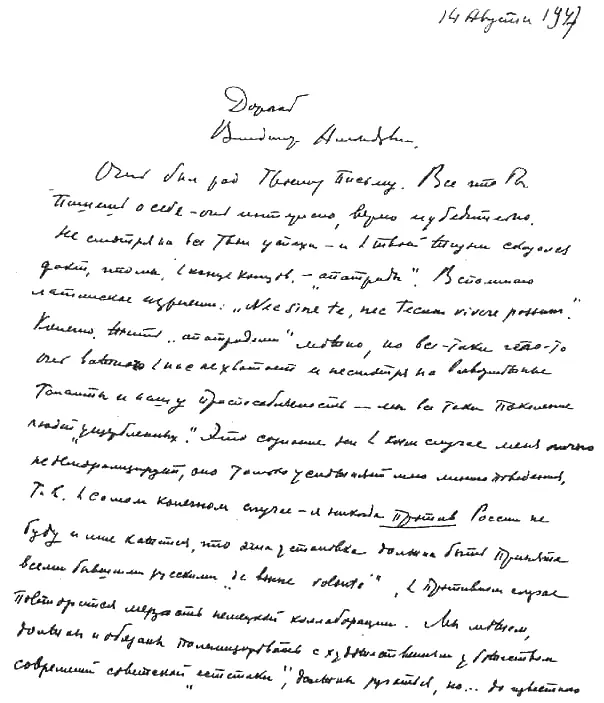 14 Августа 1947
Дорогой
Владимир
Очень был рад Твоему письму. Все что Ты
пишешь о себе – очень интересно, верно и убедительно.
Не смотря на все Твои успехи – и в твоей жизни сказался
факт, что мы, в конце концов, – "апатриды". Вспоминаю
латинское изречение: "Nec sine te, nec tecum vivere possum."
Конечно, быть "апатридом" можно, но все-таки чего-то
очень важного в нас не хватает и несмотря на всевозможные
таланты и нашу приспособляемость – мы все таки поколение
людей "ущербленных". Это сознание ни в коем случае меня лично
не деморализирует, оно только усиливает мою линию поведения,
т. к. в самом конечном случае – я никогда против России не
буду и мне кажется, что эта установка должна быть принята
всеми бывшими русскими "de bonne volonté", в противном случае
повторится мерзость немецкой коллаборации. Мы можем,
должны и обязаны полемизировать с художественным убожеством
современной советской "эстетики", должны ругаться, но... до известного